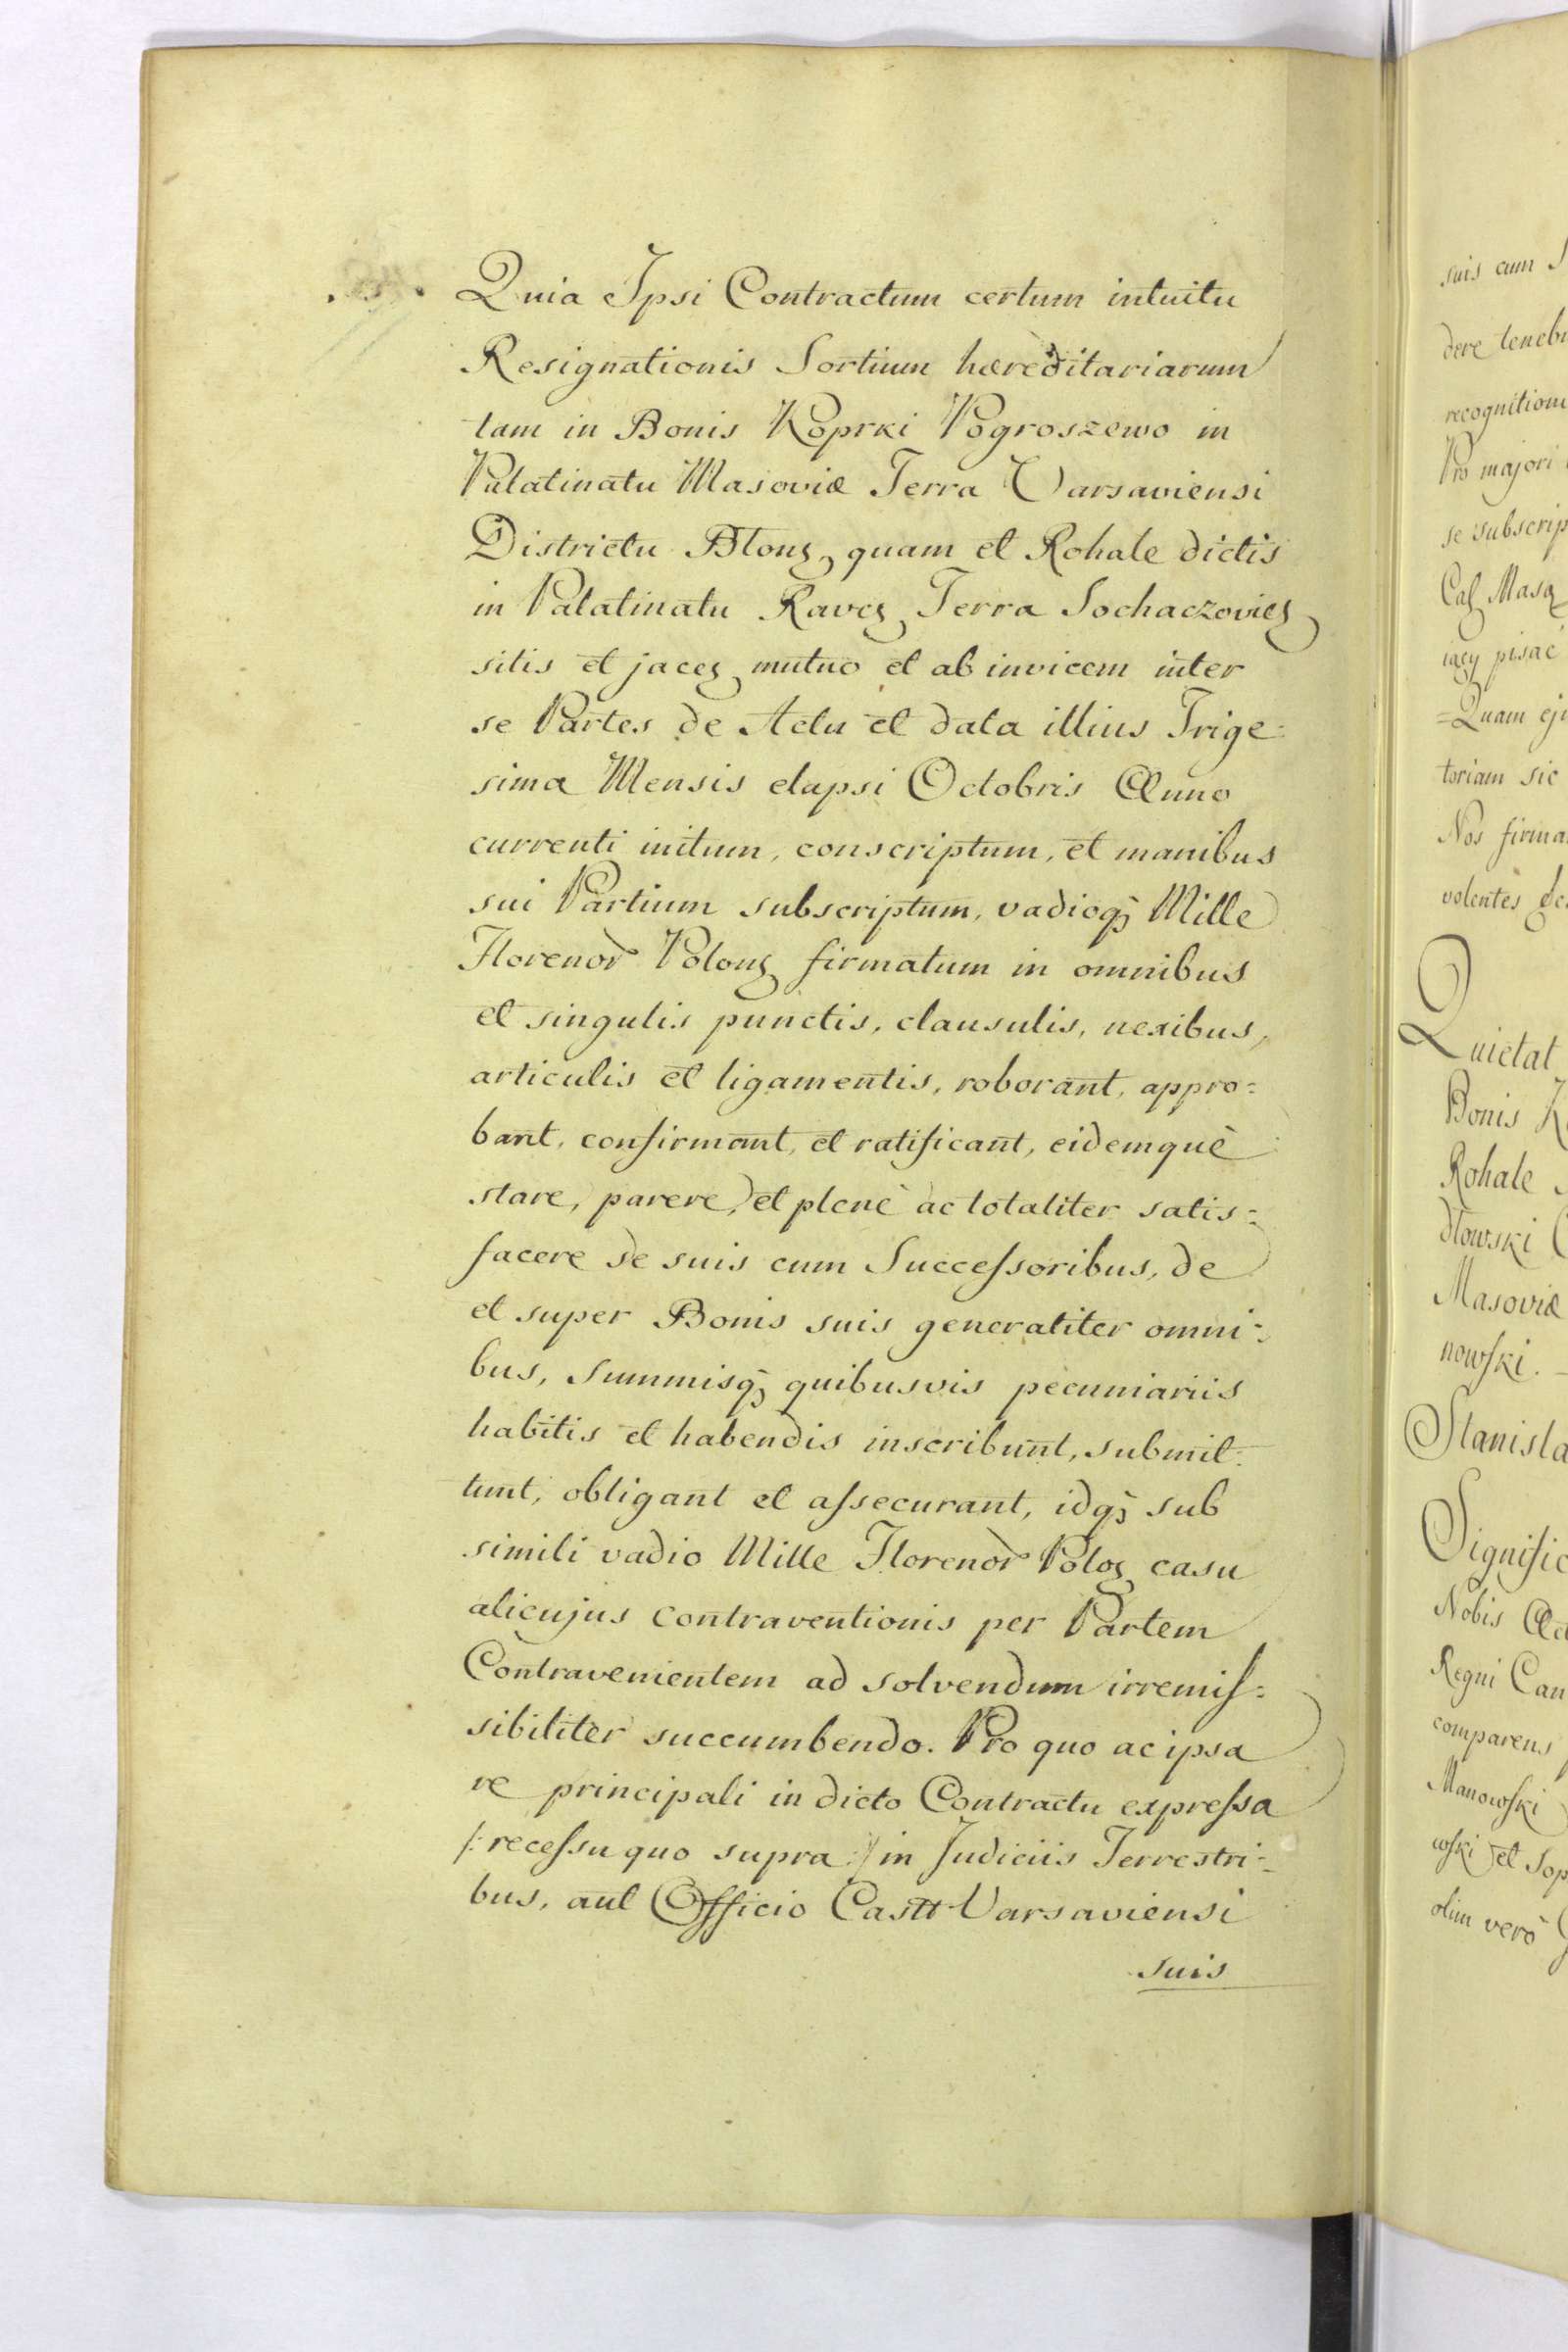 Quia Ipsi Contractum certum intuitu
Resignationis Sortium hæreditariarum
tam in Bonis Koprki Pogroszewo in
Palatinatu Masoviæ Terra Varsaviensi
Districtu Błonꝫ quam et Rohale dictis
in Palatinatu Ravcꝫ Terra Sochaczovicꝫ
sitis et jaceꝫ mutuo et ab invicem inter
se Partes de Actu et data illius Trige=
sima Mensis elapsi Octobris Anno
currenti initum, conscriptum, et manibus
sui Partium subscriptum, vadioqꝫ Mille
Florenor Polonꝫ firmatum in omnibus
et singulis punctis, clausulis, nexibus,
articulis et ligamentis, roborant, appro=
bant, confirmant, et ratificant, eidemquè
stare, parere, et plenè ac totaliter satis=
facere se suis cum Succeſsoribus, de
et super Bonis suis generaliter omni=
bus, Summisqꝫ quibusvis pecuniariis
habitis et habendis inscribunt, submit=
tunt, obligant et aſsecurant, idqꝫ sub
simili vadio Mille Florenor Poloꝫ casu
alicujus contraventionis per Partem
Contravenientem ad solvendum irremiſ=
sibiliter succumbendo. Pro quo ac ipsa
re principali in dicto Contractu expreſsa
/: receſsu quo supra :/ in Judiciis Terrestri=
bus, aut Officio Castt Varsaviensi
suis
suis cum S
dere teneb
recognition
Pro majori
se subscrip
Calꝫ Masꝫ
iący pisać
=Quam ej
toriam sic
Nos firma
volentes
Quietat
Bonis K
Rohale
dłowski
Masoviæ
nowſki.
Stanisła
Significa
Nobis Ac
Regni Can
comparens
Manowſki
wſki et Sop
olim verò